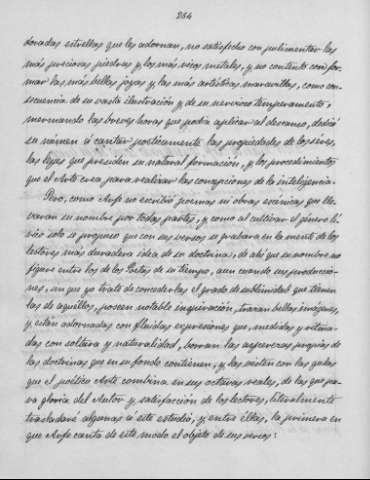 254
doradas estrellas que los adornan, no satisfecho con pulimentar las
más preciosas piedras y los más ricos metales, y no contento con for-
mar las más bellas joyas y las más artísticas maravillas, como con-
secuencia de su vasta ilustración y de su nervioso temperamento,
mermando las breves horas que podía aplicar al descanso, dedicó
su númen á cantar poéticamente las propiedades de los séres,
las leyes que presiden su natural formación, y los procedimientos
que el Arte crea para realizar las concepciones de la inteligencia.
Pero, como Arfe no escribió poemas ni obras escénicas que lle-
varan su nombre por todas partes, y como al cultivar el género lí-
rico solo se propuso que con sus versos se grabara en la mente de los
lectores más duradera idea de su doctrina, de ahí que su nombre no
figure entre los de los Poetas de su tiempo, aun cuando sus produccio-
nes, sin que yo trate de concederlas el grado de sublimidad que tienen
las de aquéllos, poseen notable inspiración, trazan bellas imágenes,
y están adornadas con fluidas expresiones que, medidas y ritma-
das con soltura y naturalidad, borran las asperezas propias de
las doctrinas que en su fondo contienen, y las visten con las galas
que el poético Arte combina en sus octavas reales, de las que pa-
ra gloria del Autor y satisfacción de los lectores, literalmente
trasladaré algunas á este estudio, y entre éllas, la primera en
que Arfe canta de este modo el objeto de sus versos: